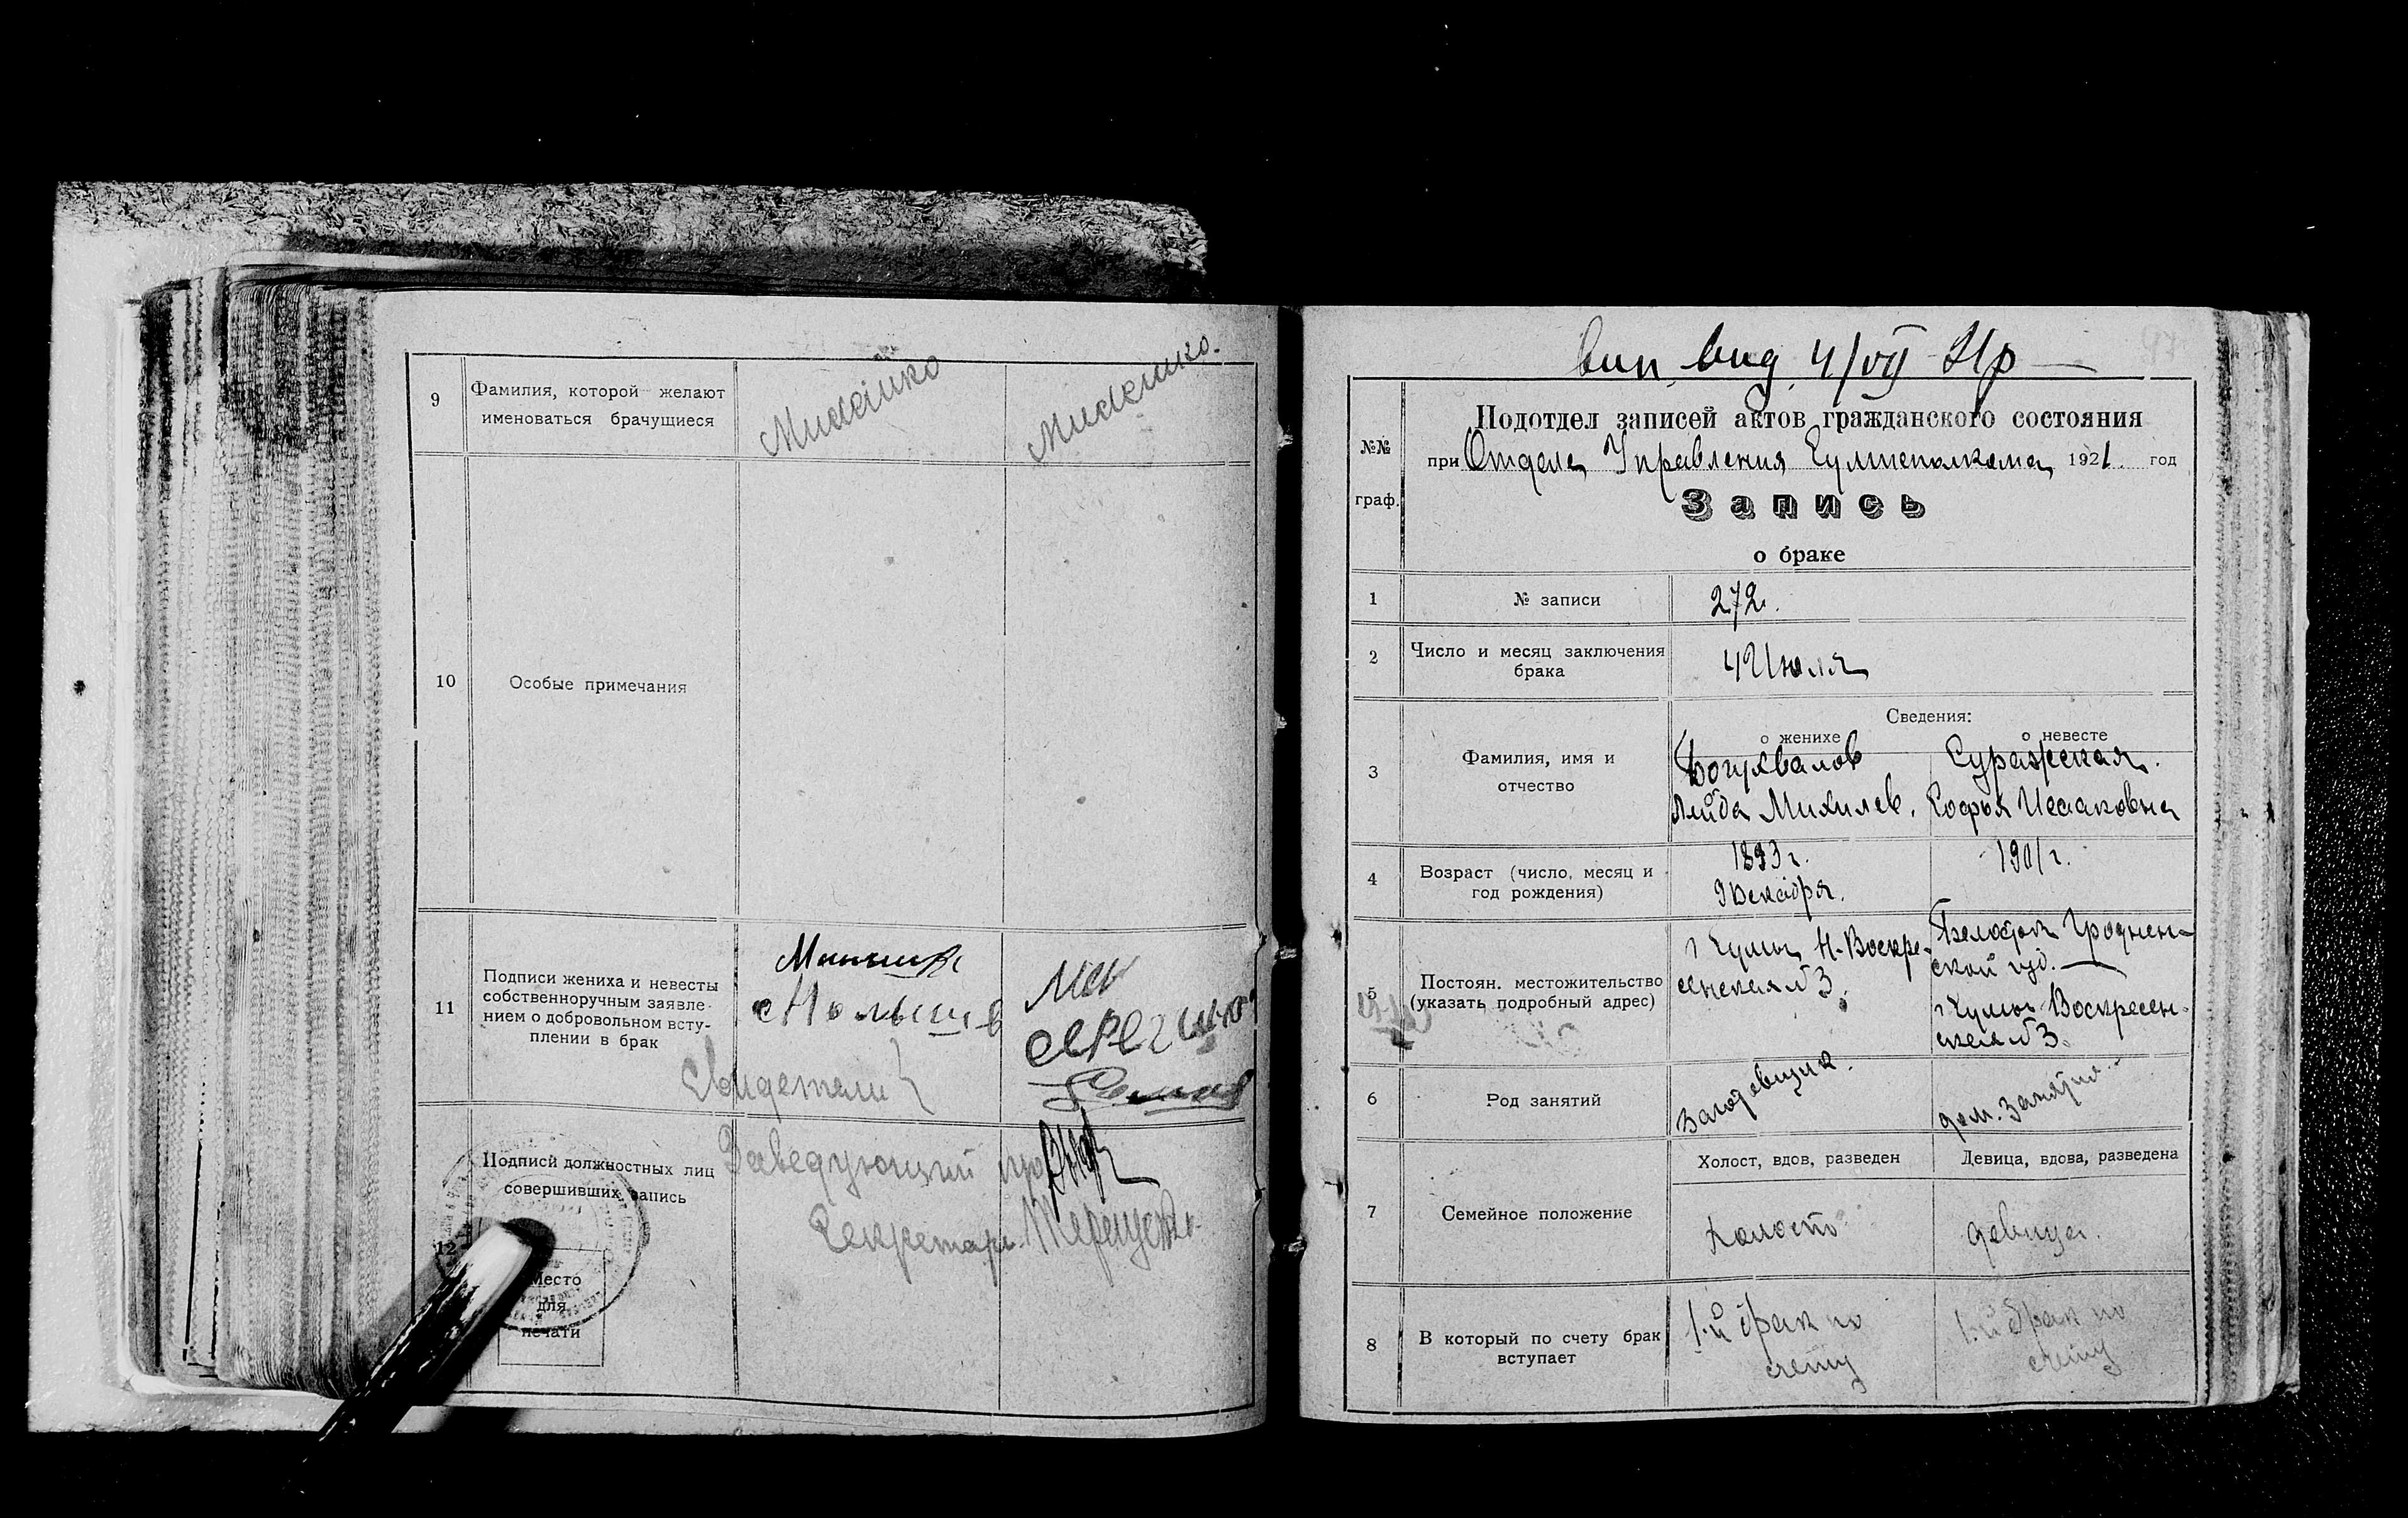 9
Фамилия, которой желают
именоваться брачущиеся
10
Особые примечания
11
Подписи жениха и невесты
собственноручным заявле-
нием о добровольном всту-
плении в брак
Свидетели
12
Подписи должностных лиц
совершивших запись
Заведующий
Секретарь
Место
для
печати
вид 4/VII
№№
граф.
Подотдел записей актов гражданского состояния
при Отделе Управления 1921. год
Запись
о браке
1
№ записи
272.
2
Число и месяц заключения
брака
4 Июля
3
Фамилия, имя и
отчество
Сведения:
о женихе
о невесте
Богухвалов
Лейба Михилев.
Суражская.
Софья Исааковна
4
Возраст (число, месяц и
год рождения)
1893 г.
9 Декабря.
1901 г.
5
Постоян. местожительство
(указать подробный адрес)
Н-Воскре-
сенская № 3.
Гроднен-
ской губ.
Воскресен-
ская № 3.
6
Род занятий
дом. занятия
7
Семейное положение
Холост, вдов, разведен
Девица, вдова, разведена
холост
девица.
8
В который по счету брак
вступает
1-й брак по
счету
1-й брак по
счету